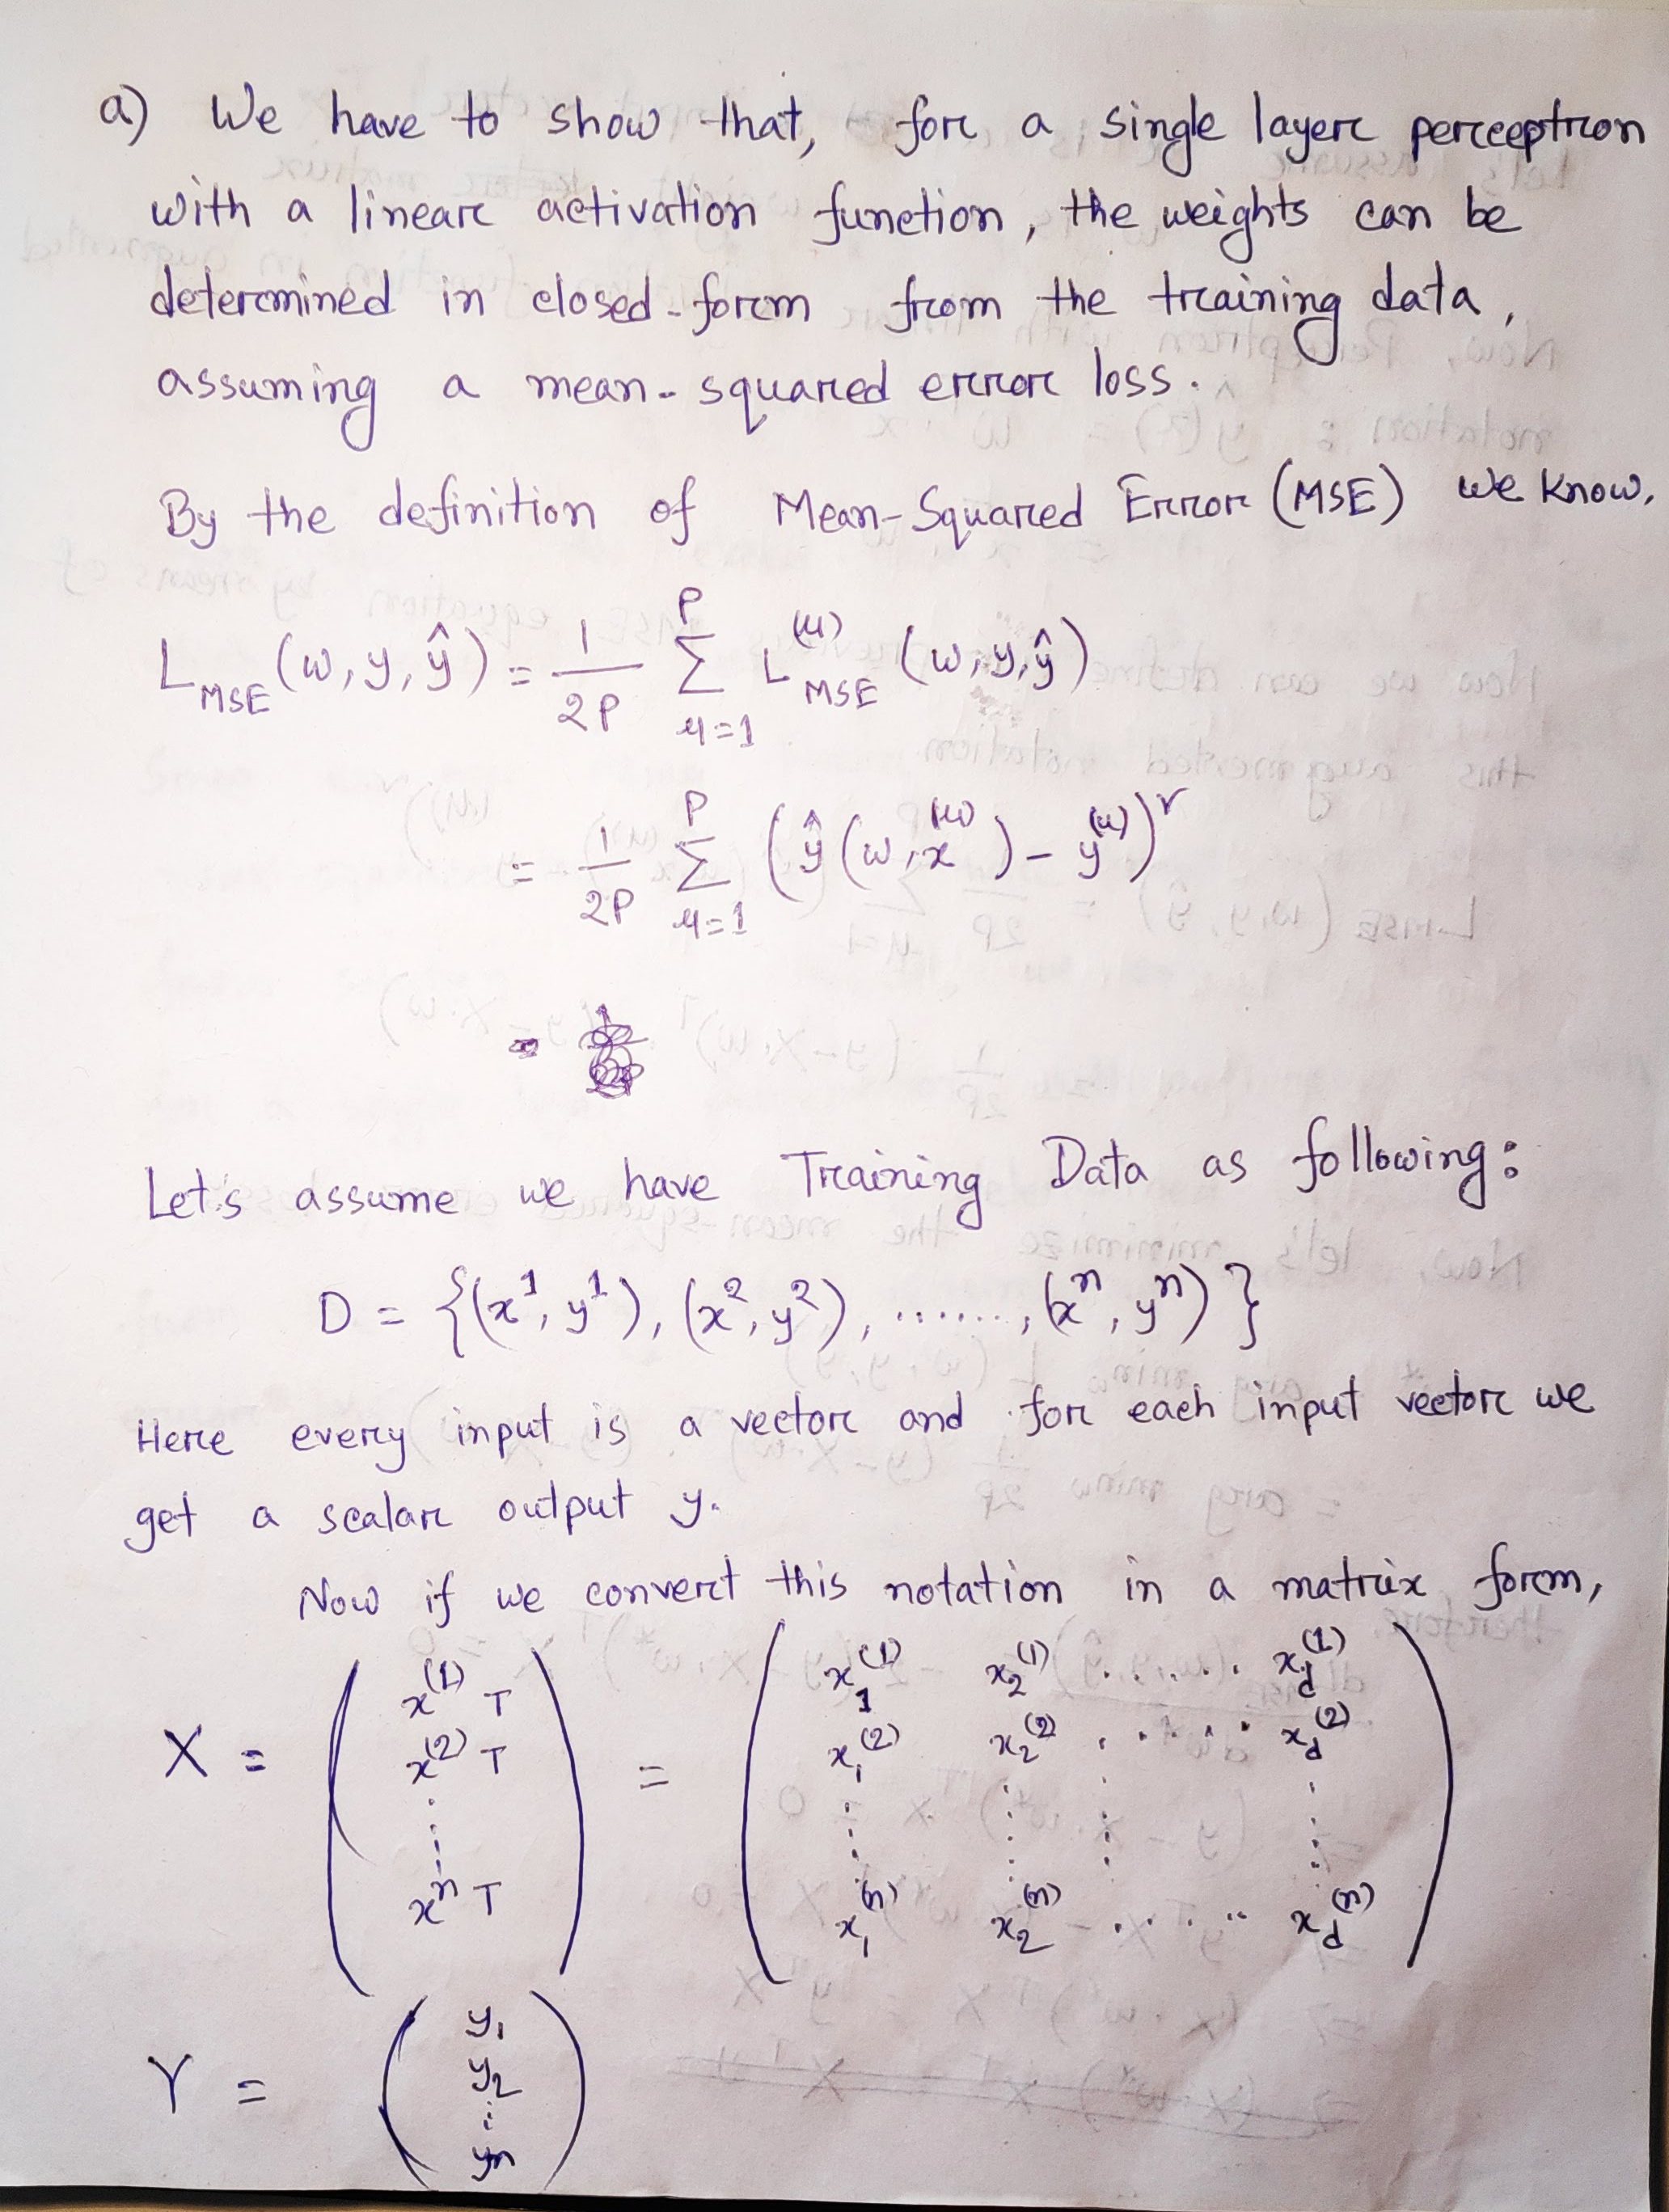 a) We have to show that, for a single layer perceptron
with a linear activation function, the weights can be
determined in closed-form from the training data,
assuming a mean-squared error loss.
By the definition of Mean-Squared Error (MSE) we know,
L_MSE (w, y, ŷ) = 1/2P Σ_{μ=1}^{P} L^{(μ)}_MSE (w, y, ŷ)
= 1/2P Σ_{μ=1}^{P} (ŷ(w, x^{(μ)}) - y^{(μ)})²
=
Let's assume we have Training Data as following:
D = {(x^1, y^1), (x^2, y^2), ......., (x^n, y^n)}
Here every input is a vector and for each input vector we
get a scalar output y.
Now if we convert this notation in a matrix form,
X = ( x^{(1)T} x^{(2)T} ⋮ x^{nT} ) = ( x_1^{(1)} x_2^{(1)} ...... x_d^{(1)}
x_1^{(2)} x_2^{(2)} ..... x_d^{(2)}
⋮ ⋮ ⋮ ⋮
x_1^{(n)} x_2^{(n)} ..... x_d^{(n)} )
Y = ( y_1
y_2
⋮
y_n )